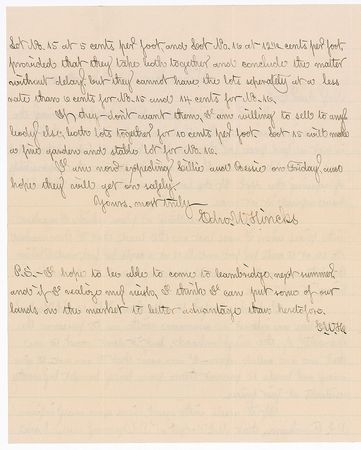 Lot No. 15 at 5 cents per foot and Lot No. 16 at 12½ cents per foot
provided that they take both together and conclude the matter
without delay, but they cannot have the lots seperately at a less
rate than 6 cents for No. 15 and 14 cents for No. 16.
If they don't want them, I am willing to sell to any
body else, both lots together for 10 cents per foot. Lot 15 will make
a fine garden and stable lot for No. 16.
I am now expecting Lillie and Bessie on Friday, and
hope they will get on safely.
Yours, most truly—
Edw. W. Hincks
P.S.— I hope to be able to come to Cambridge next summer
and if I realize my wish, I think I can put some of our
lands on the market to better advantage than heretofore.
E.W.H.